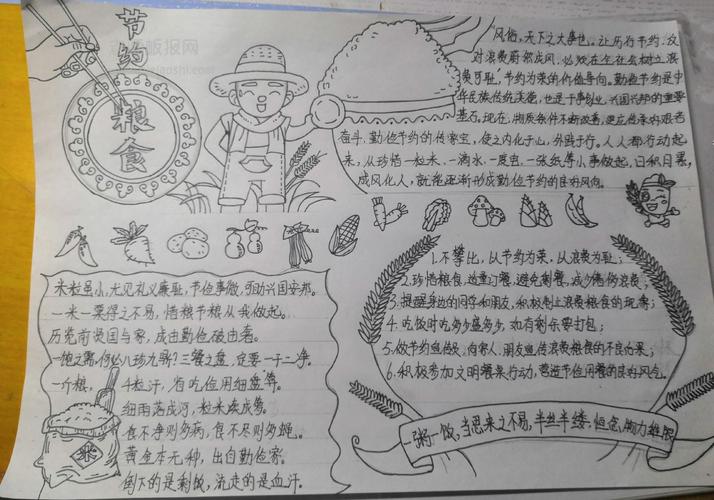 节约
粮食
风俗，天下之大事也，让厉行节约、反
对浪费蔚然成风，必须在全社会树立浪
费可耻、节约为荣的价值导向。勤俭节约是中
华民族传统美德，也是干事创业、兴国兴邦的重要
基石。现在，物质条件不断改善，更应传承好艰苦
奋斗、勤俭节约的传家宝，使之内化于心，外践于行。人人都行动起
来，从珍惜一粒米、一滴水、一度电、一张纸等小事做起，日积月累，
成风化人，就能逐渐形成勤俭节约的良好风尚。
米粒虽小，尤见礼义廉耻，节俭事微，可助兴国安邦。
一米一粟得之不易，惜粮节粮从我做起。
历览前贤国与家，成由勤俭破由奢。
一饱之需，何必八珍九鼎？三餐之盘，定要一干二净。
一斤粮，4粒汗，省吃俭用细盘算。
细雨落成河，粒米凑成箩。
食不净则多病，食不尽则多蝇。
黄金本无种，出自勤俭家。
倒下的是剩饭，流走的是血汗。
米
1.不攀比，以节约为荣，以浪费为耻；
2.珍惜粮食，适量订餐，避免剩餐，减少铺张浪费；
3.提醒身边的同学和朋友，积极制止浪费粮食的现象；
4.吃饭时吃多少盛多少，如有剩余要打包；
5.做节约宣传员，向家人、朋友宣传浪费粮食的不良后果；
6.积极参加文明餐桌行动，营造节俭用餐的良好风气。
一粥一饭，当思来之不易，半丝半缕，恒念物力维艰